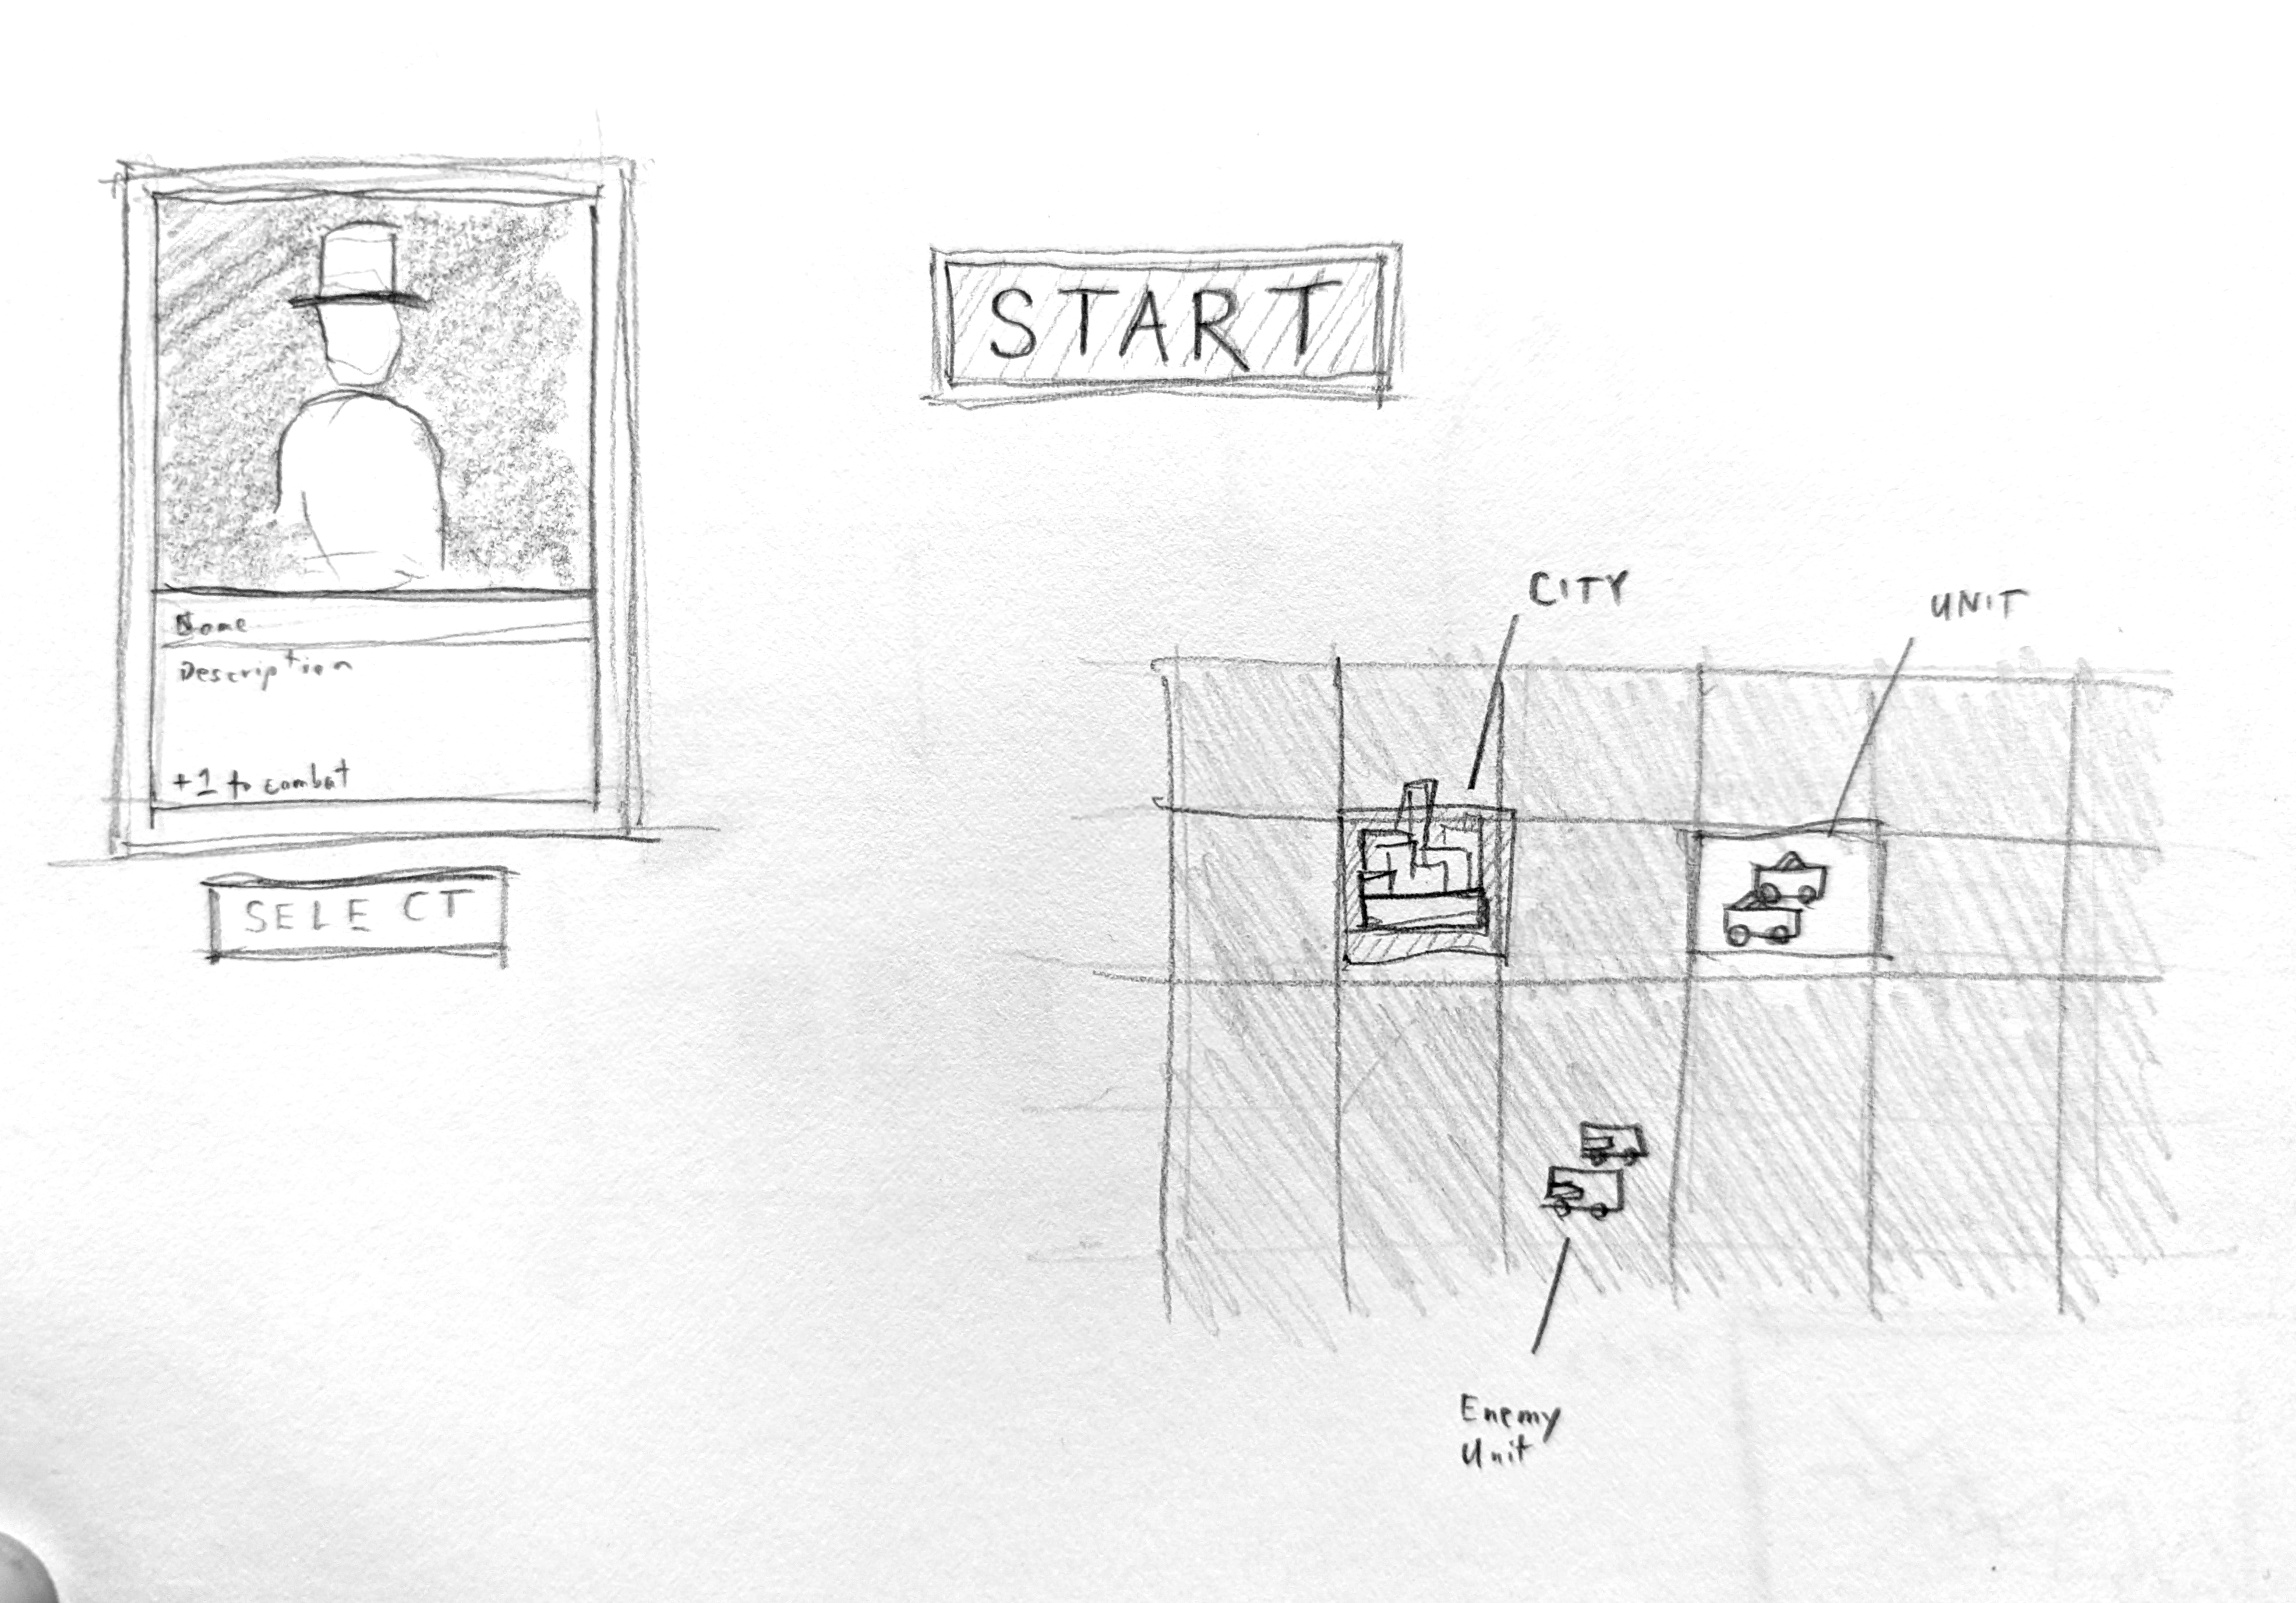 START
Name
Description
+1 to combat
SELECT
CITY
UNIT
Enemy
Unit